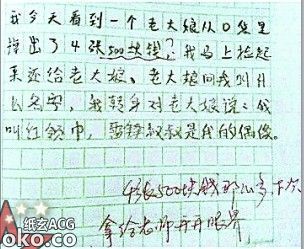 我今天看到一个老大娘从口袋里
掉出了4张500块钱,我马上捡起
来还给老大娘、老大娘问我叫什
么名字,我转身对老大娘说:我
叫红领巾,雷锋叔叔是我的偶像。
4张500块钱那么多下次
拿给老师开开眼界
纸玄ACG
oko.co